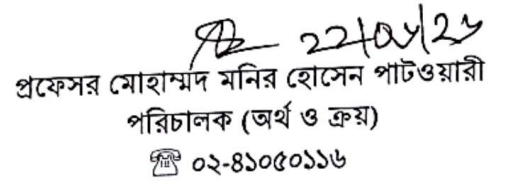 প্রফেসর মোহাম্মদ মনির হোসেন পাটওয়ারী
পরিচালক (অর্থ ও ক্রয়)
☎ ০২-৪১০৫০১১৬